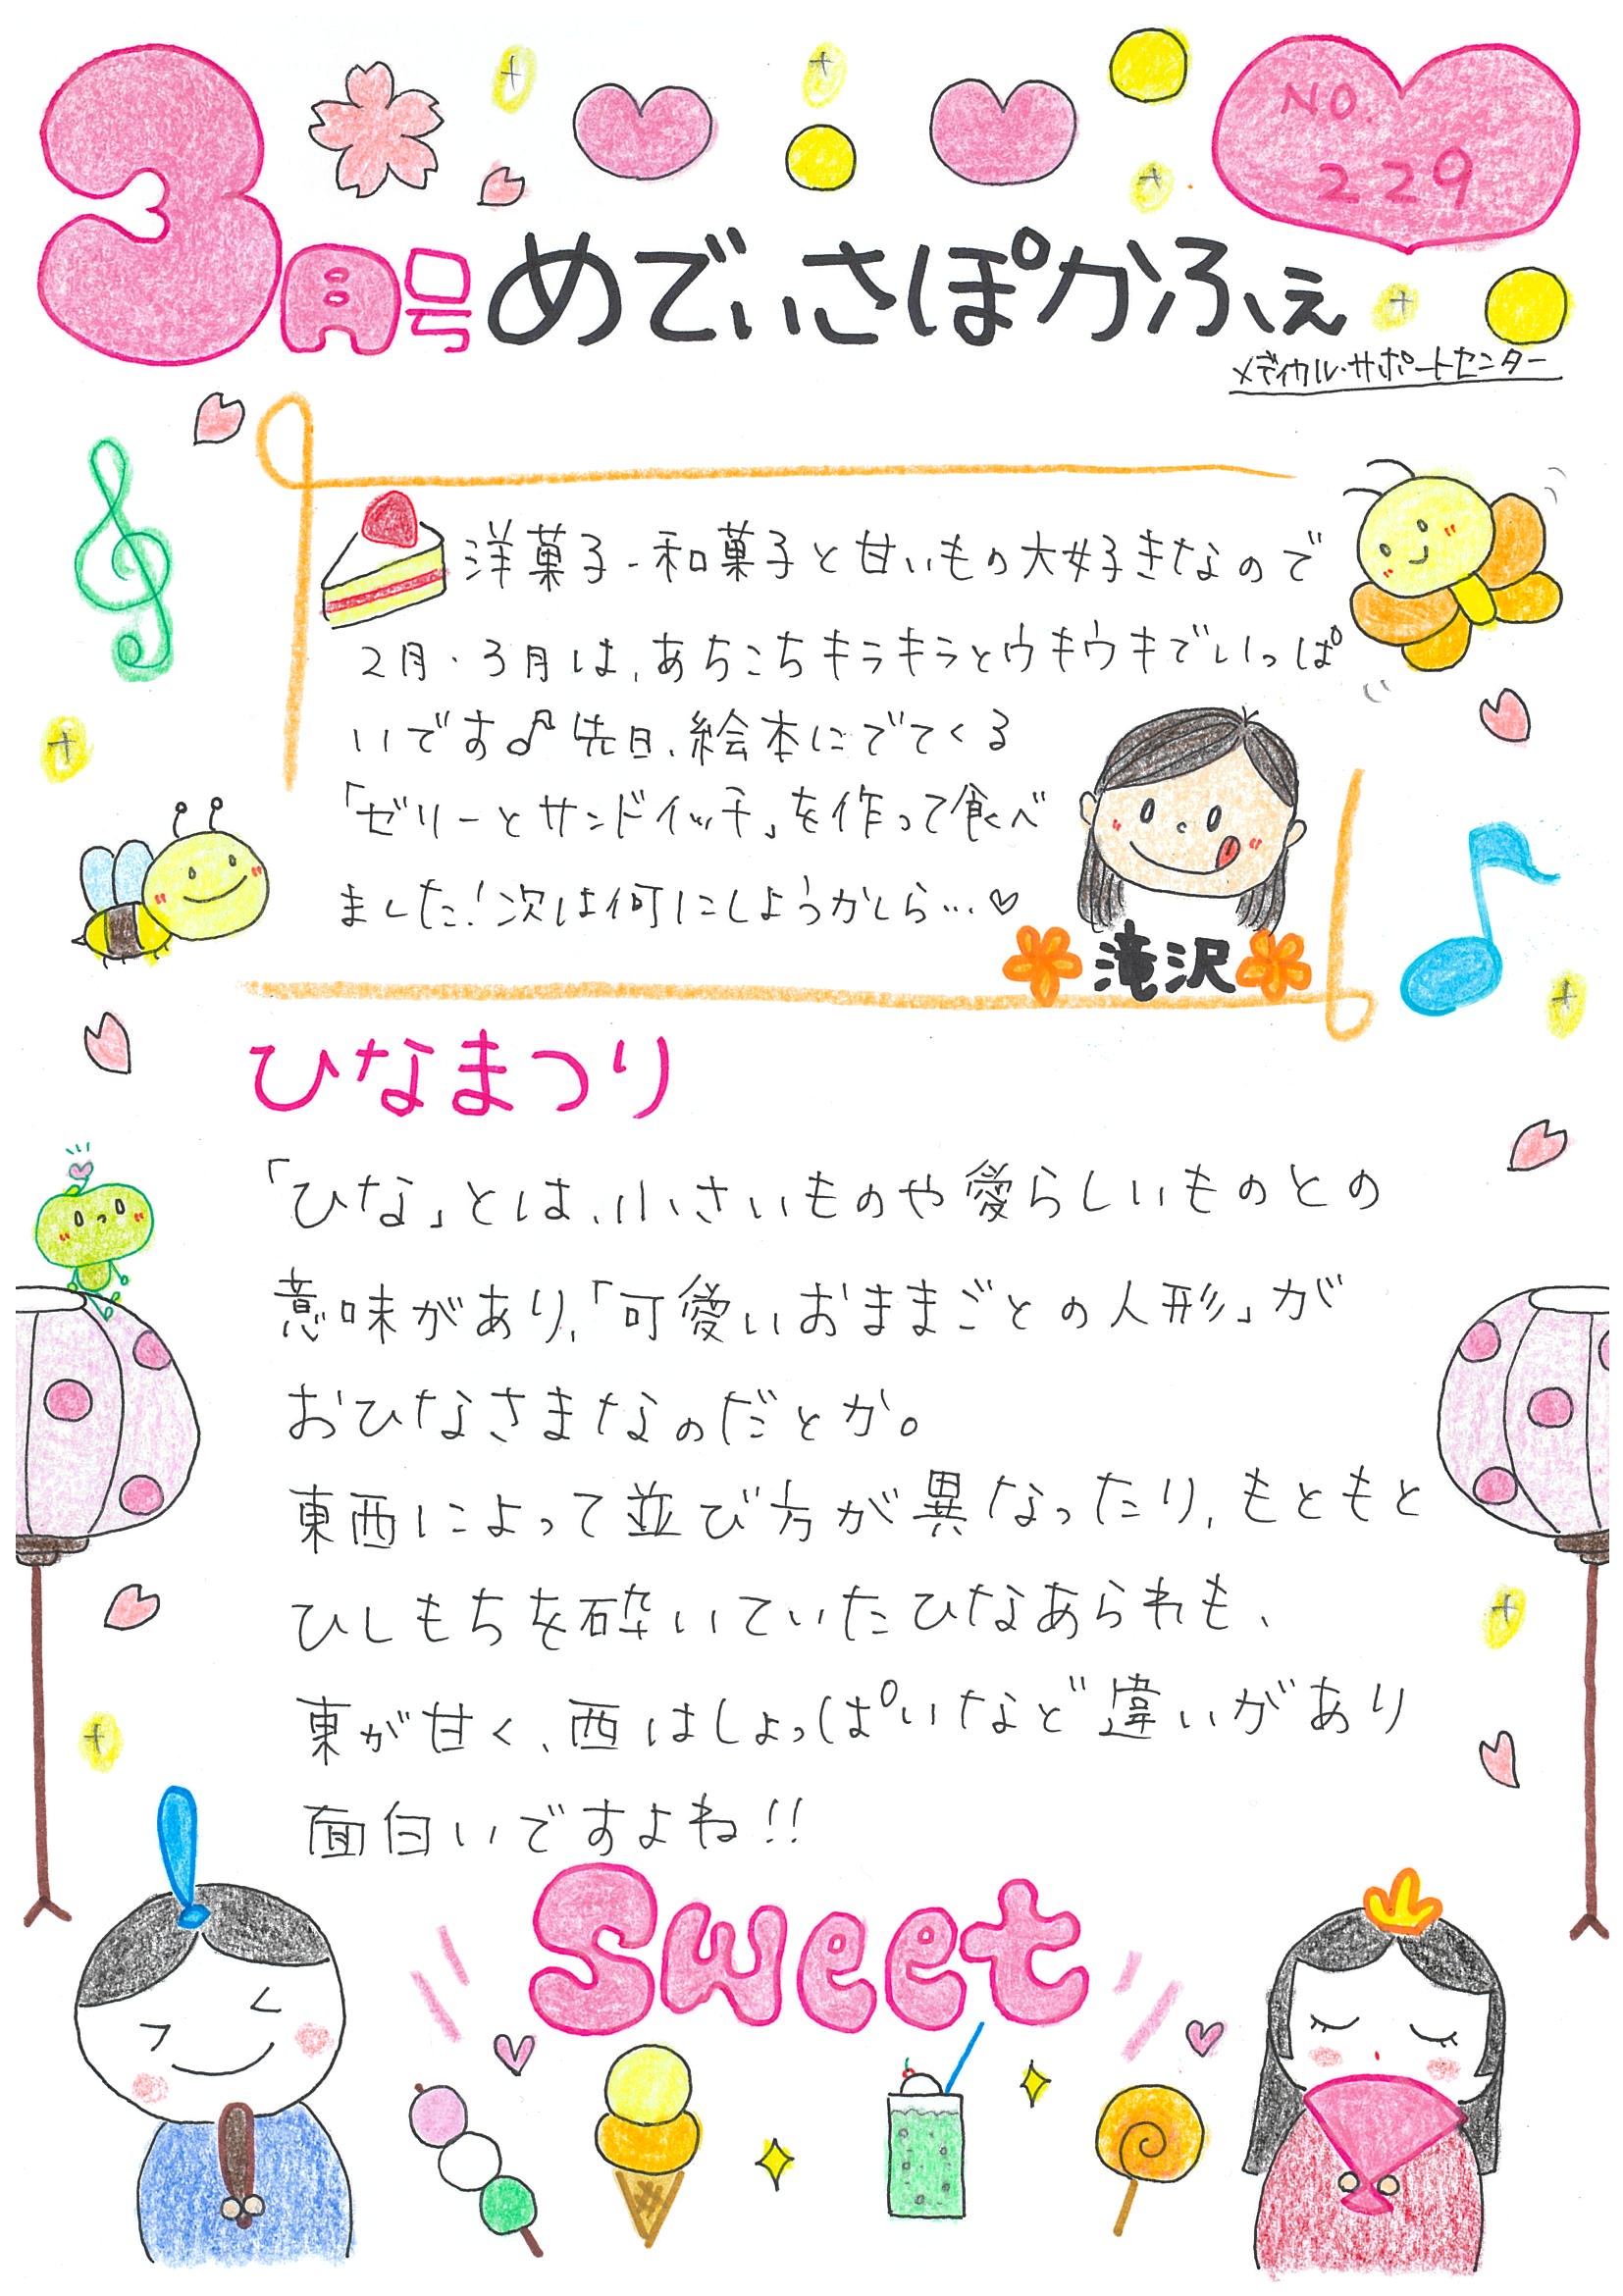 3月号 めでぃさぽかふぇ
NO.
229
メディカル・サポートセンター
洋菓子・和菓子と甘いもの大好きなので
2月・3月は、あちこちキラキラとウキウキでいっぱ
いです♪先日、絵本にでてくる
「ゼリーとサンドイッチ」を作って食べ
ました!次は何にしようかしら…♡
滝沢
ひなまつり
「ひな」とは、小さいものや愛らしいものとの
意味があり、「可愛いおままごとの人形」が
おひなさまなのだとか。
東西によって並び方が異なったり、もともと
ひしもちを砕いていたひなあられも、
東が甘く、西はしょっぱいなど違いがあり
面白いですよね!!
Sweet